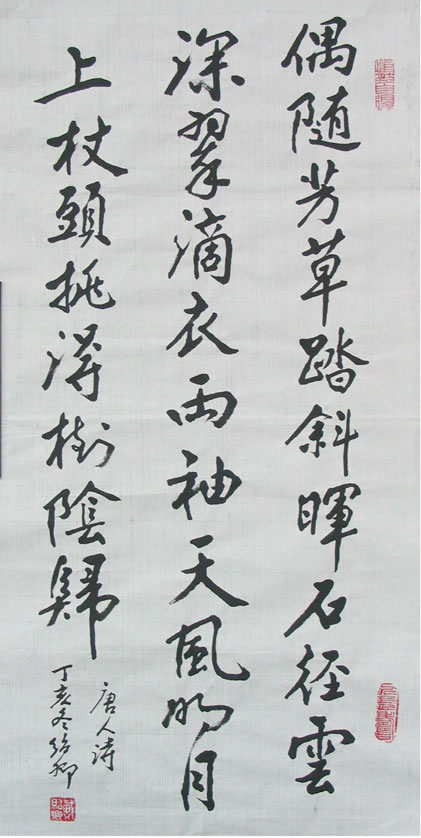 偶随芳草踏斜暉石徑雲
深翠滴衣兩袖天風明月
上杖頭挑得樹陰歸
唐人诗
丁亥冬绍卿